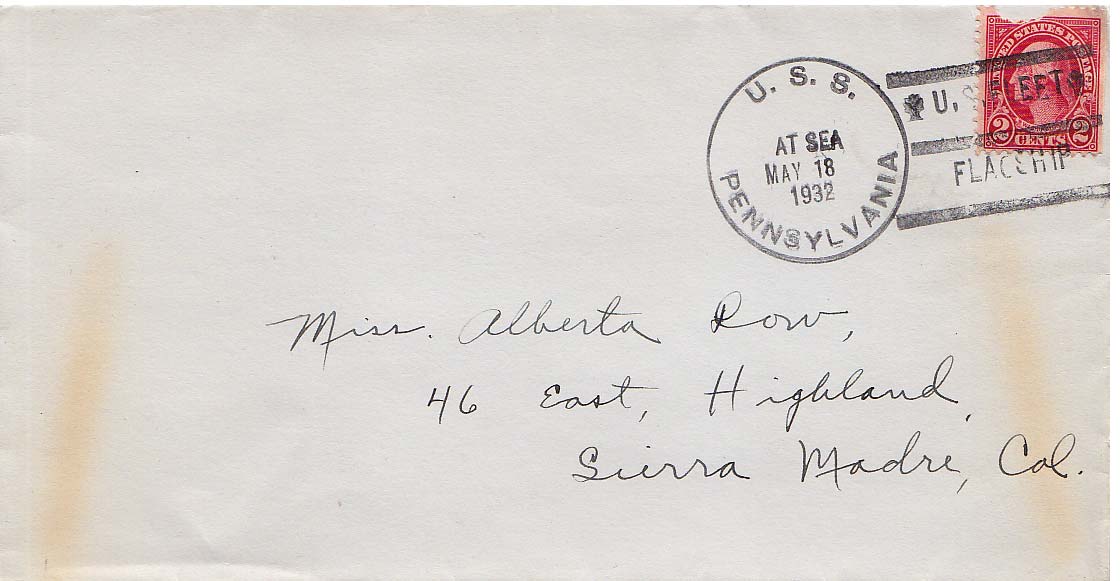 UNITED STATES POSTAGE
2 CENTS 2
U. S. S.
AT SEA
MAY 18
1932
PENNSYLVANIA
U. S. FLEET
FLAGSHIP
Miss. Alberta Row,
46 East, Highland,
Sierra Madre, Cal.